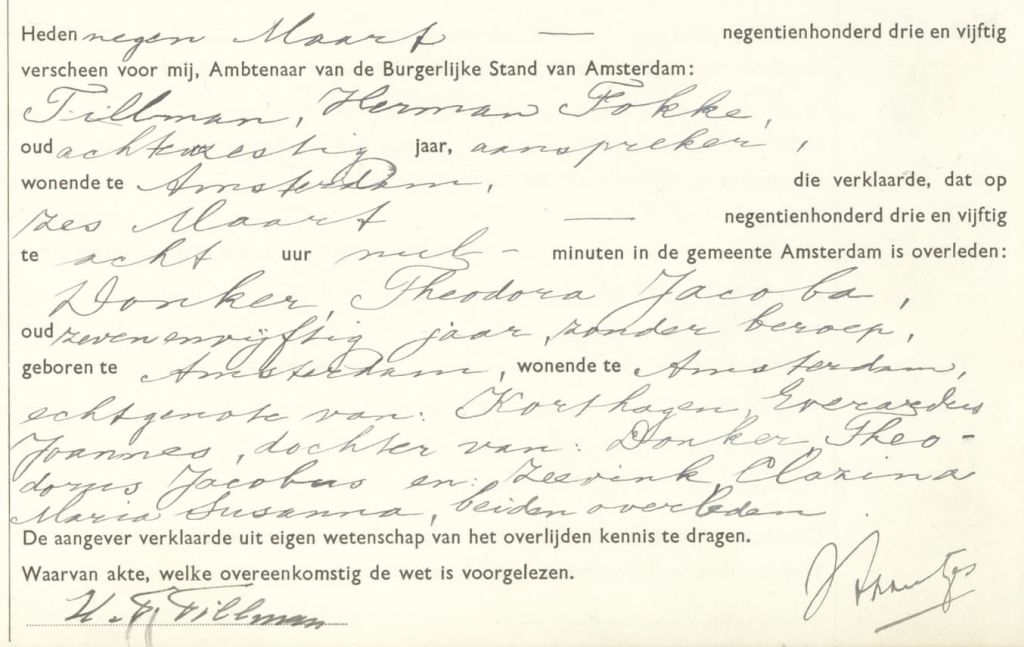 Heden negen Maart — negentienhonderd drie en vijftig
verscheen voor mij, Ambtenaar van de Burgerlijke Stand van Amsterdam:
Tillman, Herman Fokke,
oud achtenzestig jaar, aanspreker,
wonende te Amsterdam, die verklaarde, dat op
zes Maart — negentienhonderd drie en vijftig
te acht uur nul - minuten in de gemeente Amsterdam is overleden:
Donker, Theodora Jacoba,
oud zevenenvijftig jaar, zonder beroep,
geboren te Amsterdam, wonende te Amsterdam,
echtgenote van: Korthagen, Everardus
Joannes, dochter van: Donker, Theo-
dorus Jacobus en: Zeevink, Clazina
Maria Susanna, beiden overleden.
De aangever verklaarde uit eigen wetenschap van het overlijden kennis te dragen.
Waarvan akte, welke overeenkomstig de wet is voorgelezen.
H. F. Tillman